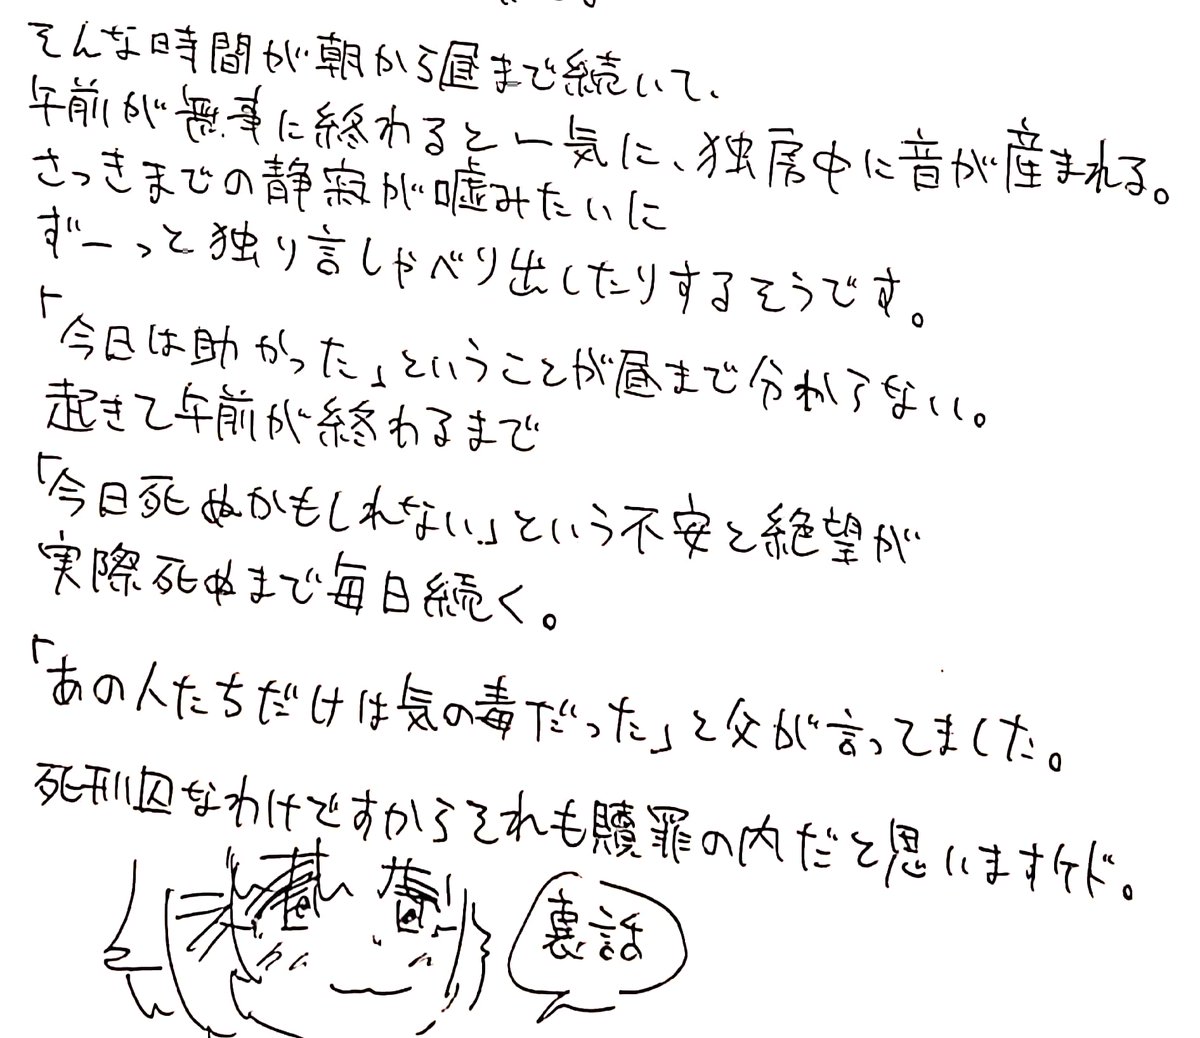 そんな時間が朝から昼まで続いて、
午前が無事に終わると一気に、独房中に音が産まれる。
さっきまでの静寂が嘘みたいに
ずーっと独り言しゃべり出したりするそうです。
「今日は助かった」ということが昼まで分からない。
起きて午前が終わるまで
「今日死ぬかもしれない」という不安と絶望が
実際死ぬまで毎日続く。
「あの人たちだけは気の毒だった」と父が言ってました。
死刑囚なわけですからそれも贖罪の内だと思いますケド。
裏話